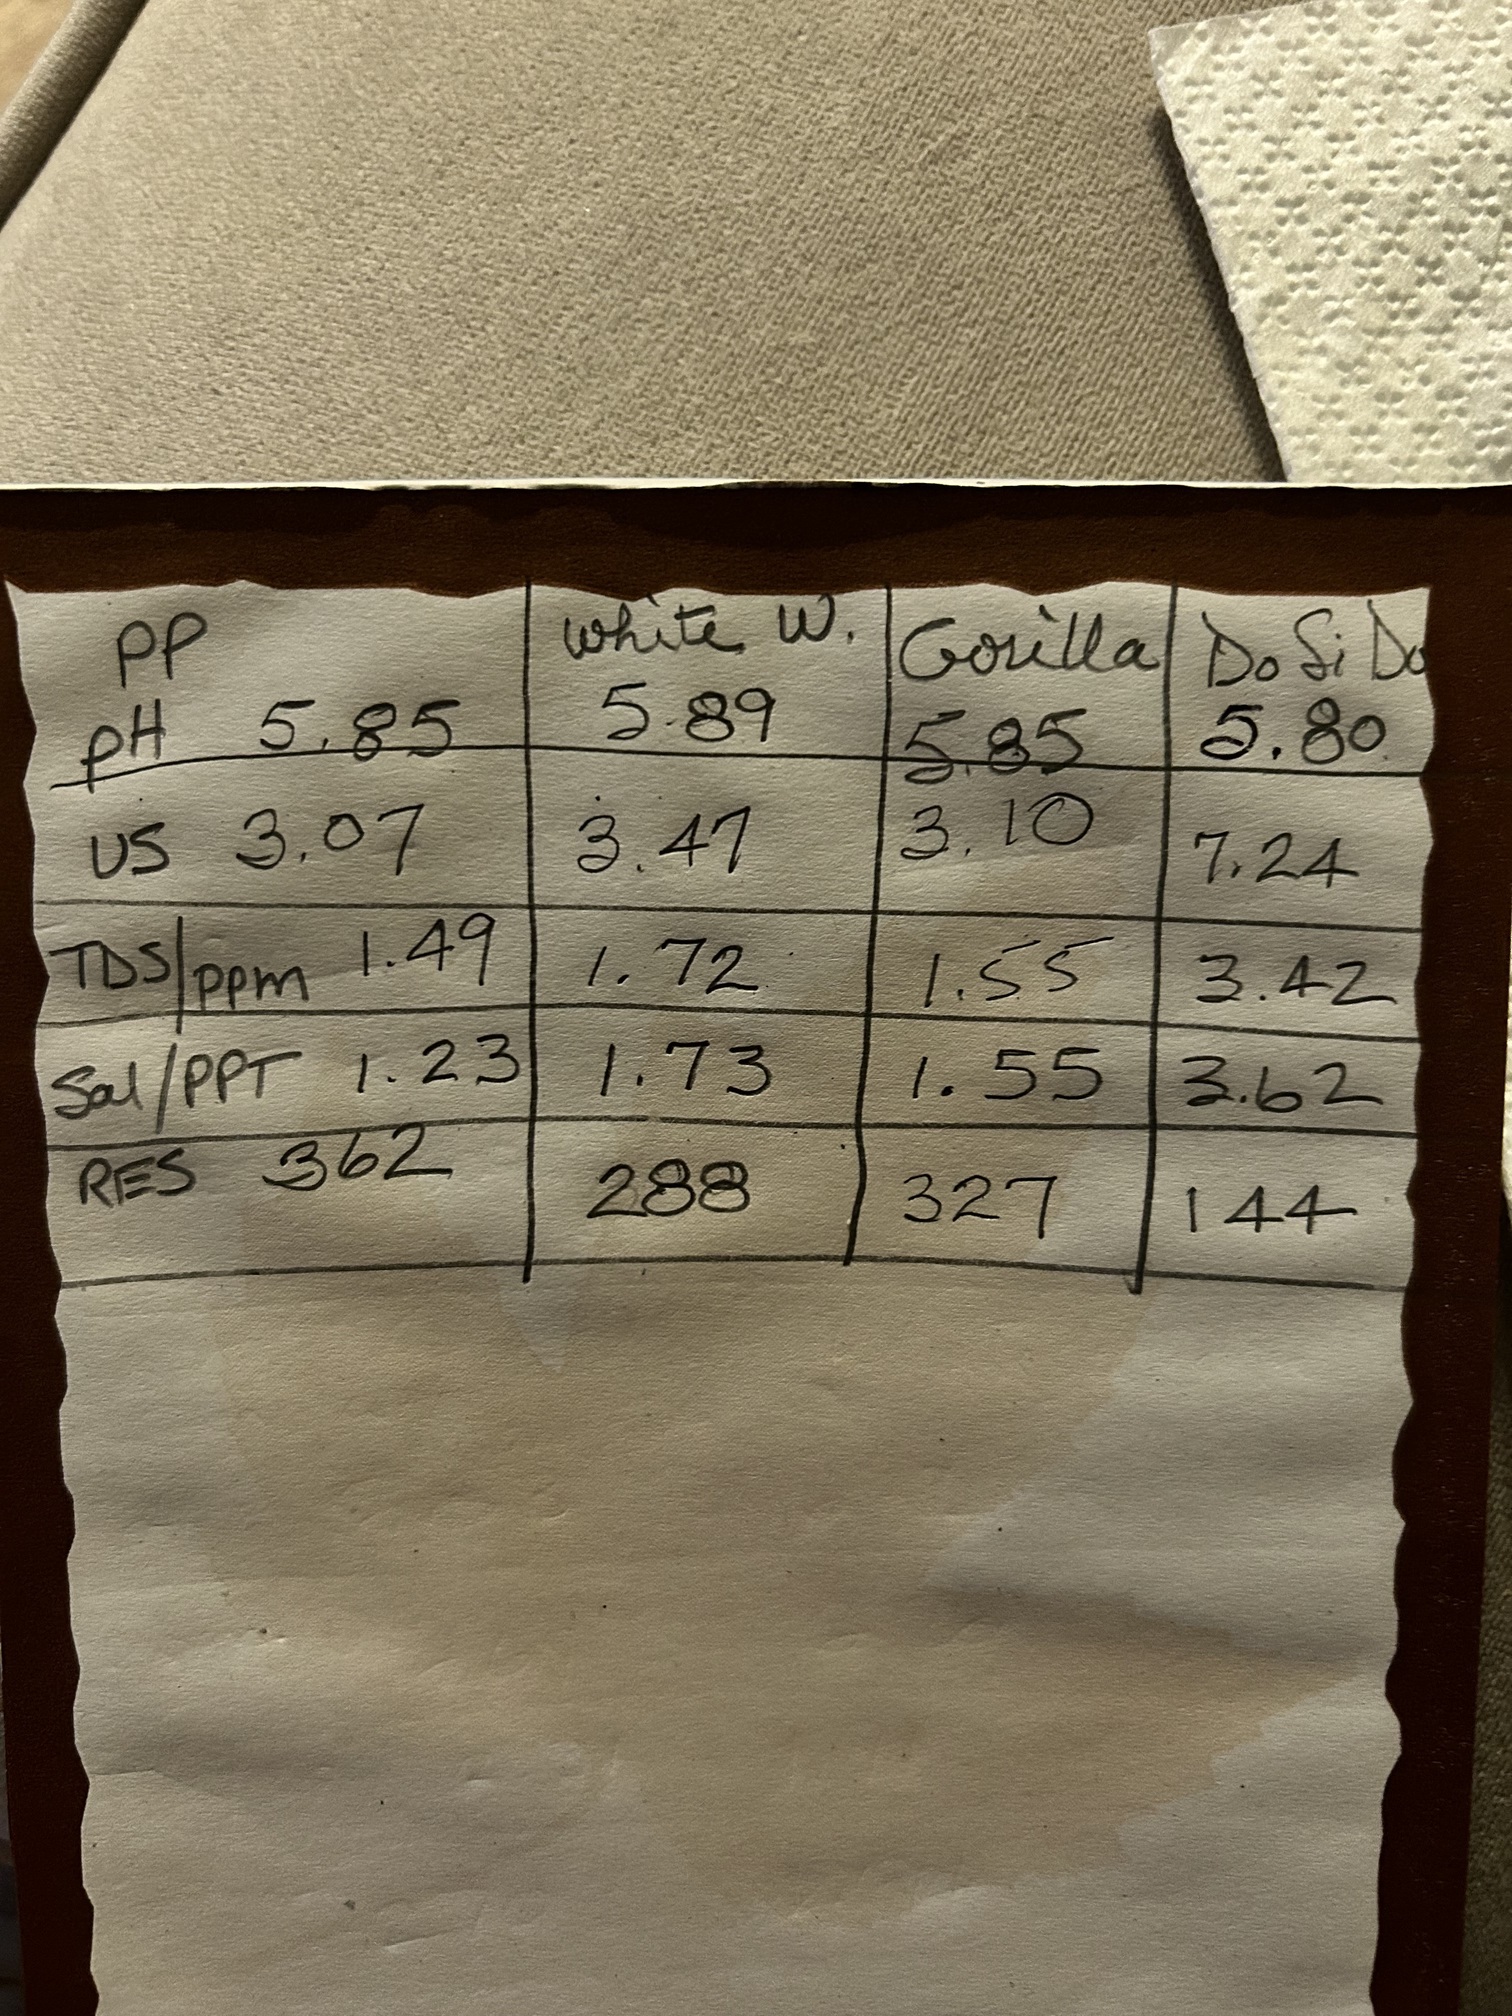 PP White W. Gorilla Do Si Do
pH 5.85 5.89 5.85 5.80
US 3.07 3.47 3.10 7.24
TDS/ppm 1.49 1.72 1.55 3.42
Sal/PPT 1.23 1.73 1.55 3.62
RES 362 288 327 144